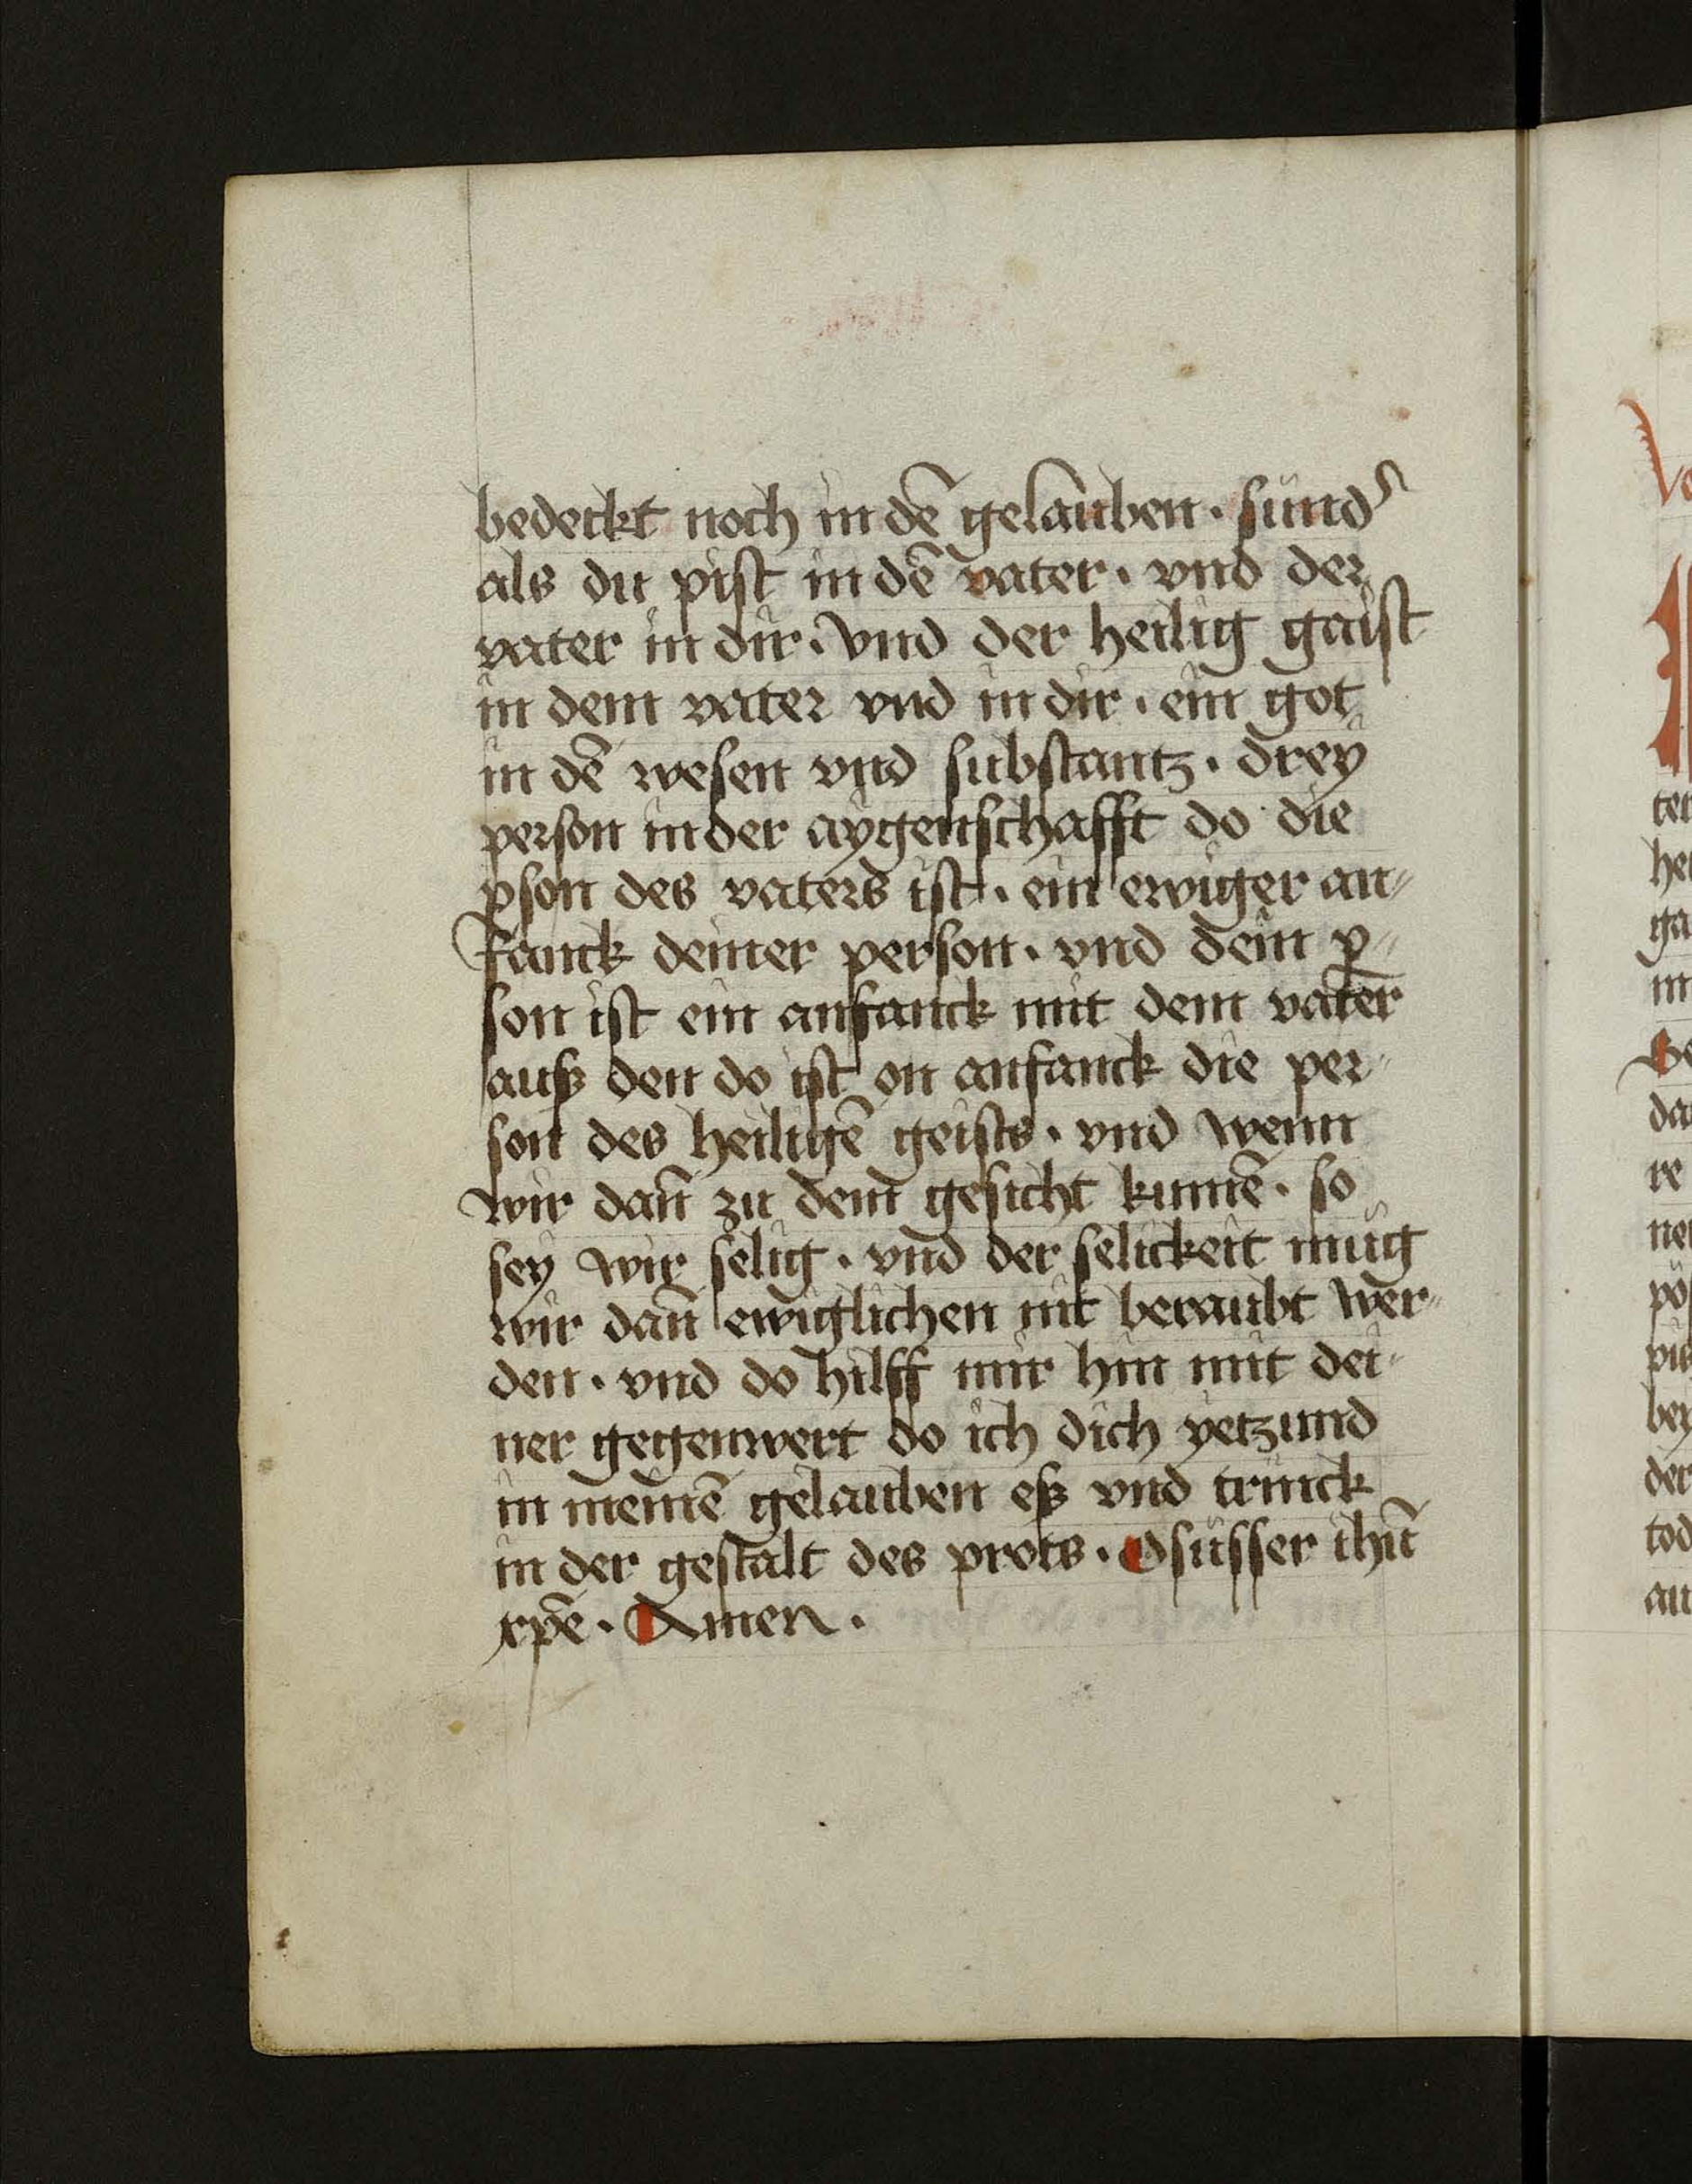 bedeckt noch in dē gelauben · sünd᷑
als du pist in dē vater · vnd der
vater in dir · vnd der heilig gaist
in dem vater vnd in dir · ein got
in dē wesen vnd substantz · dreÿ
person in der aÿgenschafft do die
ꝑson des vaters ist · ein ewiger an⸗
fanck deiner person · vnd dein ꝑ⸗
son ist ein anfanck mit dem vater
auß den do ist on anfanck die per⸗
son des heiligē geists · vnd wenn
wir dañ zu dem gesicht kumē · so
seÿ wir selig · vnd der selickeit müg
wir dañ ewiglichen nit beraubt wer⸗
den · vnd do hilff mir hin mit dei⸗
ner gegenwert do ich dich yetzund
in meinē gelauben eß vnd trinck
in der gestalt des prots · O süsser ihū
xp̄e · Amen ·
Ge
ter
hei
ga
da
re
ner
pö
bey
der
tod